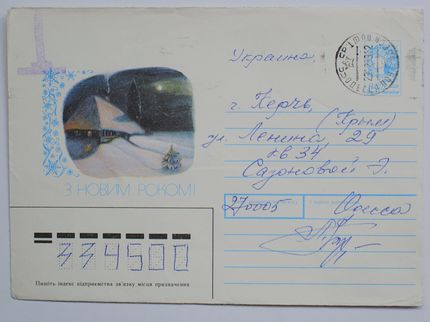 Украина,
г. Керчь,
(Крым)
ул. Ленина, 29
кв 34
Сазоновой Э.
З НОВИМ РОКОМ!
270005 Одесса
334500
Пишіть індекс підприємства зв'язку місця призначення